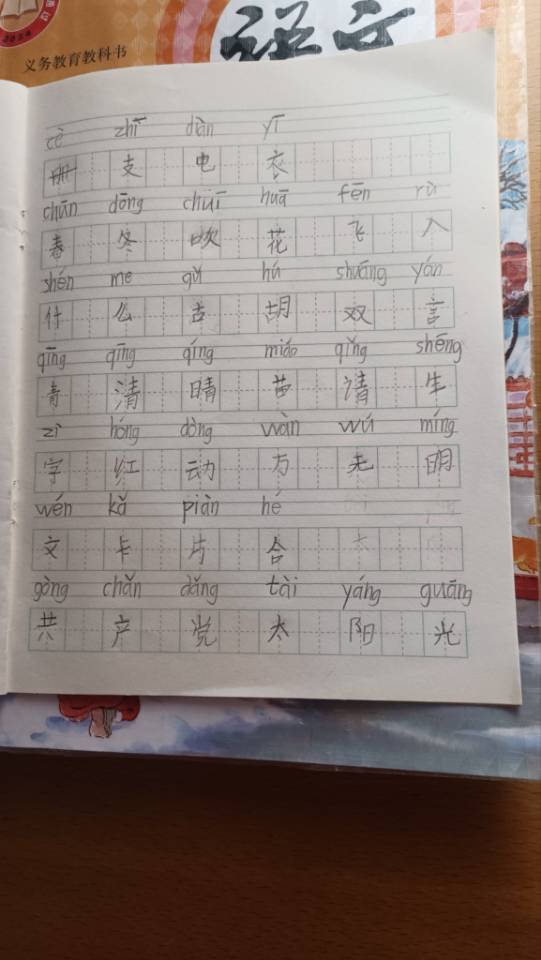 语文
义务教育教科书
cè zhī diàn yī
册 支 电 衣
chūn dōng chuī huā fēn rù
春 冬 吹 花 飞 入
shén me gǔ hú shuāng yán
什 么 古 胡 双 言
qīng qīng qíng miáo qǐng shēng
青 清 晴 苗 请 生
zì hóng dòng wàn wú míng
字 红 动 万 无 明
wén kǎ piàn hé
文 卡 片 合
gòng chǎn dǎng tài yáng guāng
共 产 党 太 阳 光